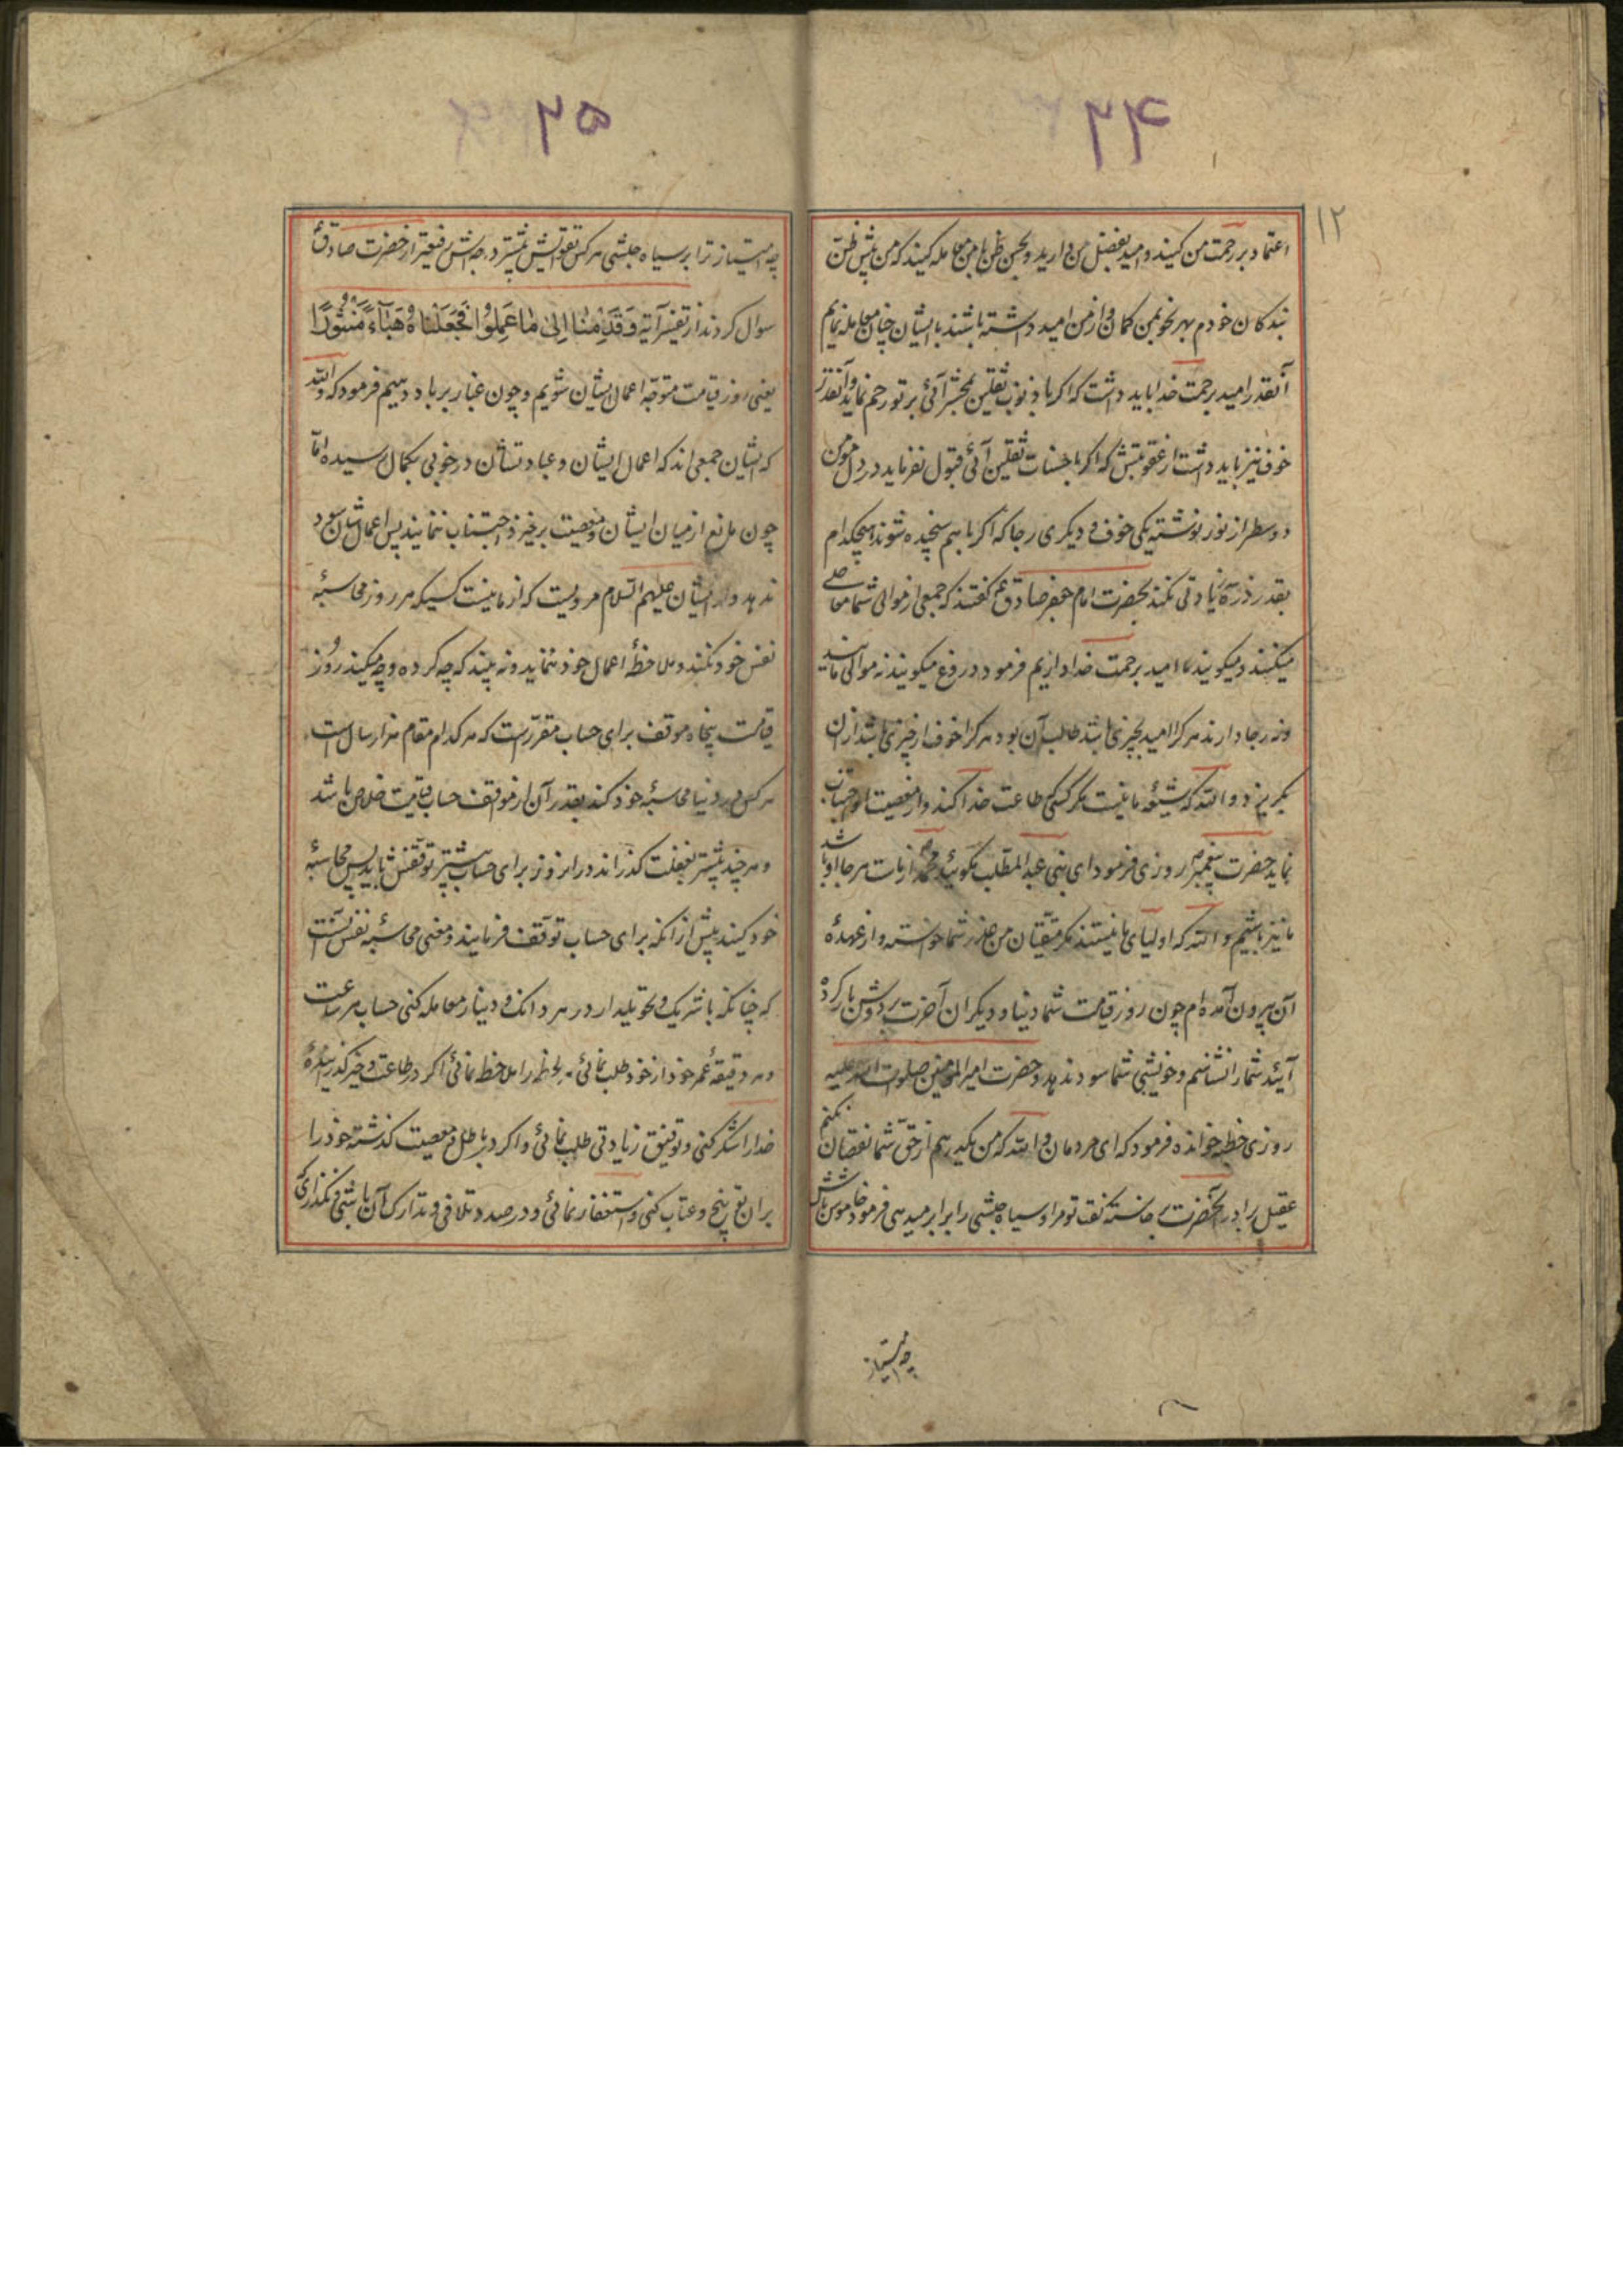 ۲۴
۱۲
اعتماد بر رحمت من کنید و امید بفضل من دارید و بحسن ظن با من معامله کنید که من پیش ظن
بندکان خودم بهر نحو بمن کمان و از من امید داشته باشند با ایشان چنان معامله نمایم
آنقدر امید برحمت خدا باید داشت که اکر با ذنوب ثقلین بمحشر آئی بر تو رحم نماید و آنقدر
خوف نیز باید داشت از عقوبتش که اکر با حسنات ثقلین آئی قبول نفرماید در دل مومن
دو سطر از نور نوشته یکی خوف و دیکری رجا که اکر با هم سنجیده شوند هیچکدام
بقدر ذره زیادتی نکند بحضرت امام جعفر صادق ع گفتند که جمعی از موالی شما معاصی
میکنند و میکویند ما امید برحمت خدا داریم فرمود دروغ میکویند نه موالی مایند
و نه رجا دارند هر کرا امید بچیزی باشد طالب آن بود هر کرا خوف از چیزی باشد از ان
بکریزد و الله که شیعه ما نیست مکر کسی که طاعت خدا کند و از معصیت او اجتناب
نماید حضرت پیغمبر ص روزی فرمود ای بنی عبد المطلب مکوئید محمد ص از ماست هر جا او باشد
ما نیز باشیم و الله که اولیای ما نیستند مکر متقیان من عذر شما خواسته و از عهدهٔ
آن بیرون آمده ام چون روز قیامت شما دنیا و دیکران آخرت بر دوش بار کرده
آیند شما را نشناسم و خویشی شما سود ندهد و حضرت امیر المومنین صلوت الله علیه
روزی خطبه خوانده فرمود که ای مردمان و الله که من یکدرهم از حق شما نقصان نکنم
عقیل برادر آنحضرت بر خاسته کفت تو مرا و سیاه حبشی را برابر میدهی فرمود خاموش باش
چه امتیاز
۲۵
چه امتیاز ترا بر سیاه حبشی هر کس تقویش بیشتر درجه اش رفیعتر از حضرت صادق ع
سوال کردند از تفسیر آیه وَقَدِمْنَا اِلیٰ مٰا عَمِلُوْا فَجَعَلْنٰاهُ هَبَآءً مَنْثُوْرًا
یعنی روز قیامت متوجه اعمال ایشان شویم و چون غبار بر باد دهیم فرمود که والله
که ایشان جمعی اند که اعمال ایشان و عباد تشان در خوبی بکمال رسیده امّا
چون مانع از میان ایشان و معصیت برخیزد اجتناب ننمایند پس اعمال شان سود
ندهد و از ایشان علیهم السلام مرویست که از ما نیست کسیکه هر روز محاسبهٔ
نفس خود نکند و ملاحظهٔ اعمال خود ننماید و نه بیند که چه کرده و چه میکند روز
قیامت پنجاه موقف برای حساب مقررست که هر کدام مقام هزار سال است
هر کس در دنیا محاسبهٔ خود کند بقدر آن از موقف حساب قیامت خلاص باشد
و هر چند بیشتر بغفلت کذراند در انروز برای حساب بیشتر توقفش باید پس محاسبهٔ
خود کنید پیش از انکه برای حساب توقف فرمایند و معنی محاسبه نفس آنست
که چنانکه با شریک و تحویلدار در هر دانک و دینار معامله کنی حساب هر ساعت
و هر دقیقهٔ عمر خود از خود طلب نمائی هر لحظه را ملاحظه نمائی اکر در طاعت و خیر کذرانیدهٔ
خدا را شکر کنی و توفیق زیادتی طلب نمائی و اکر در باطل و معصیت کذشته خود را
بران توبیخ و عتاب کنی و استغفار نمائی و در صدد تلافی و تدارک آن باشی و نکذاری